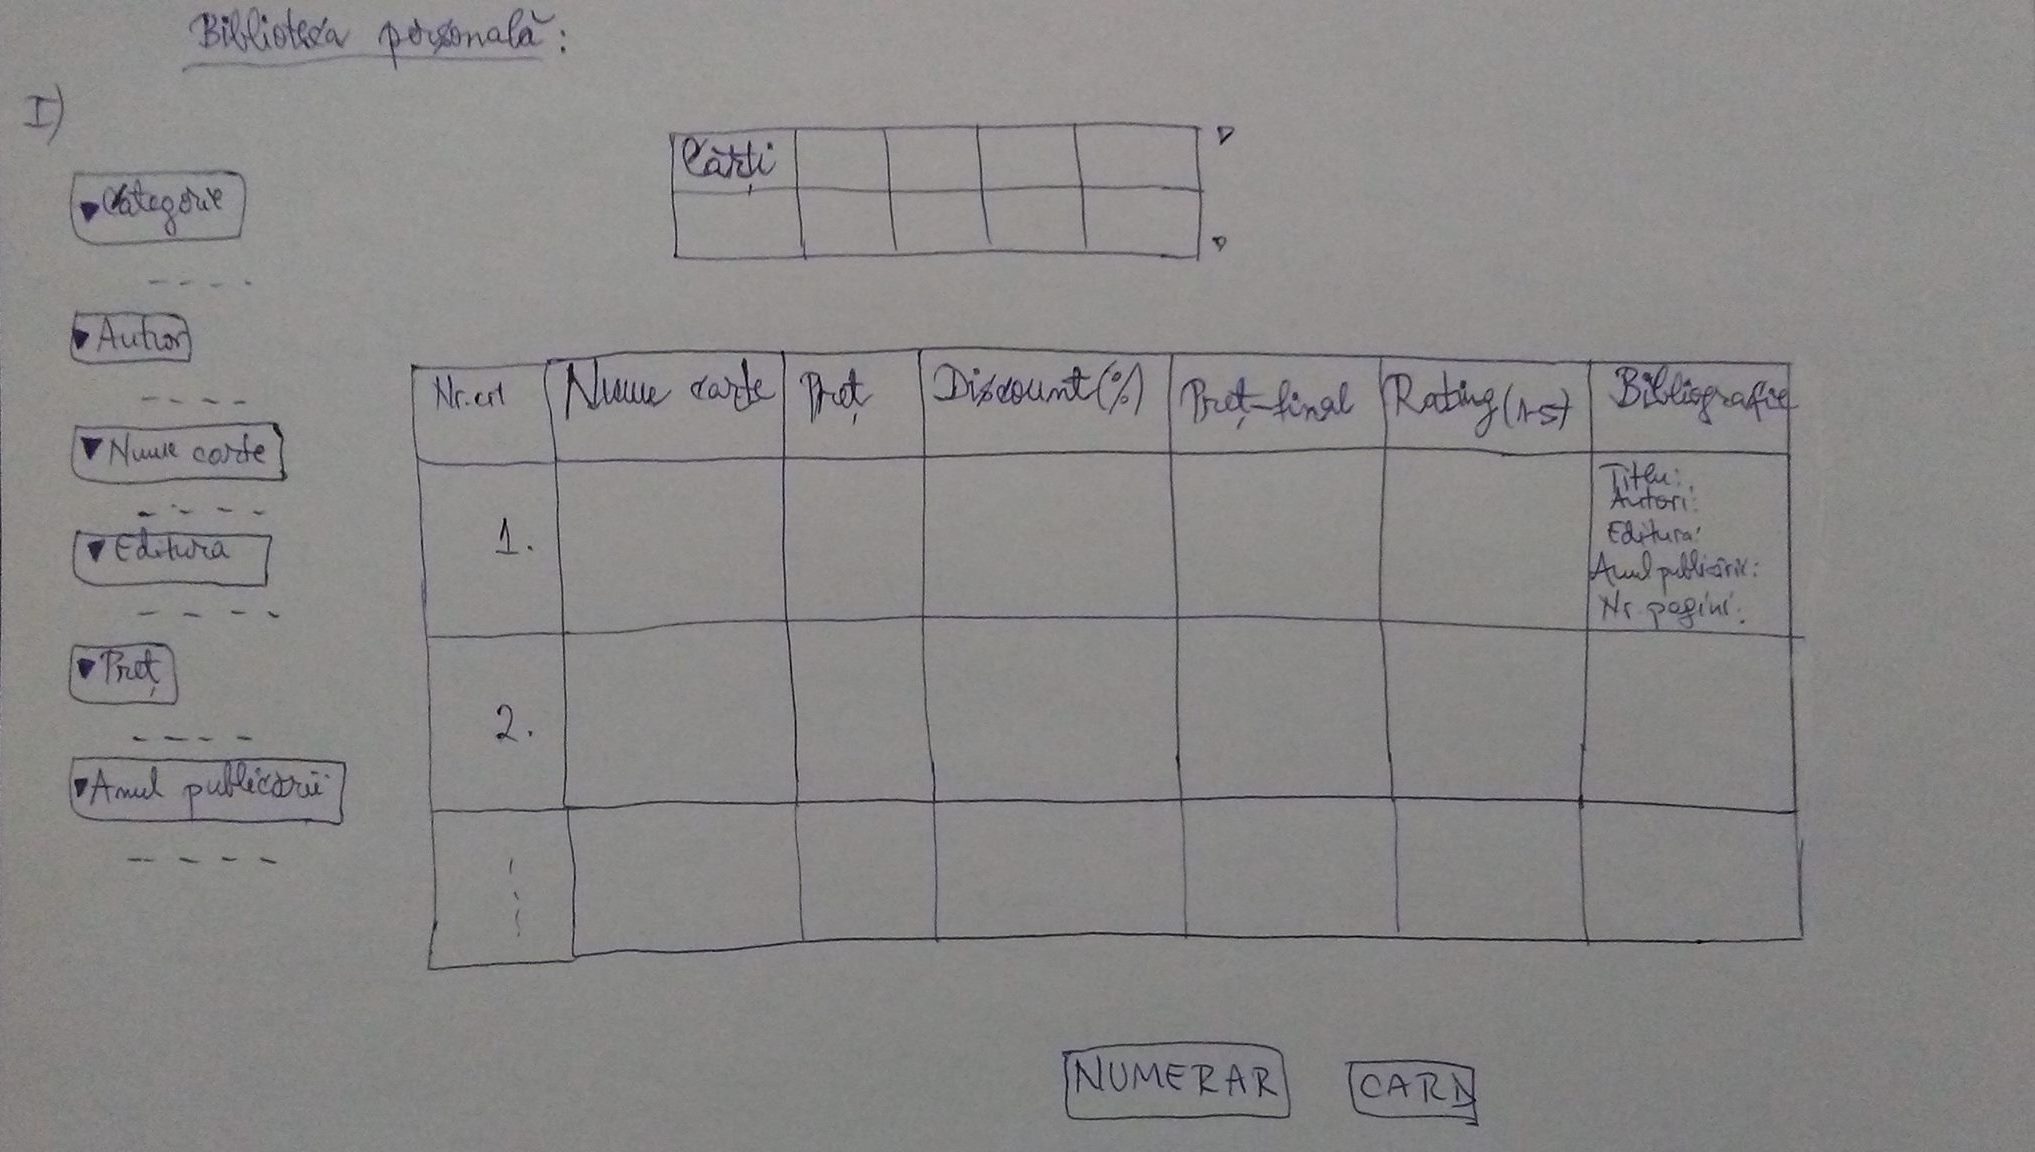 Biblioteca personală:
I)
Cărți
Categorie
Autor
Nume carte
Editura
Preț
Anul publicării
Nr. crt
Nume carte
Preț
Discount(%)
Preț-final
Rating(1-5)
Bibliografie
1.
Titlu:
Autori:
Editura:
Anul publicării:
Nr. pagini:
2.
NUMERAR
CARD